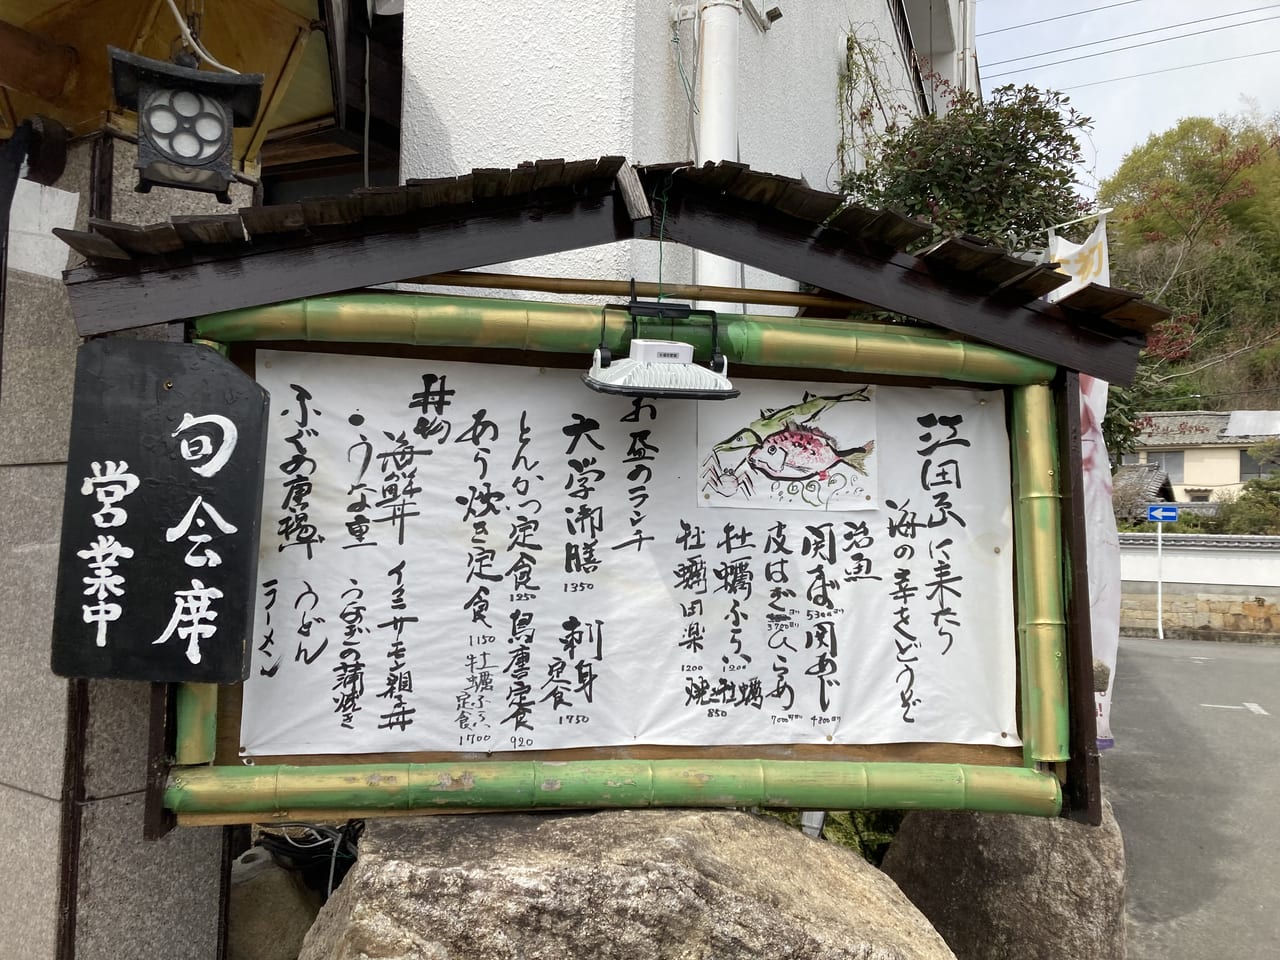 江田島に来たら
海の幸をどうぞ
活魚
関さば 関あじ
5300より
4800より
皮はぎ ひらめ
3700より
7000円より
牡蠣ふらい 焼き牡蠣
1200
850
牡蠣田楽
1200
お昼のランチ
大学御膳 刺身定食
1350
1750
とんかつ定食 鳥唐定食
1250
920
あら炊き定食 牡蠣ふらい定食
1150
1700
丼物
海鮮丼 イクラサーモン親子丼
・うな重 うなぎの蒲焼き
ふぐの唐揚 うどん
ラーメン
旬会席
営業中